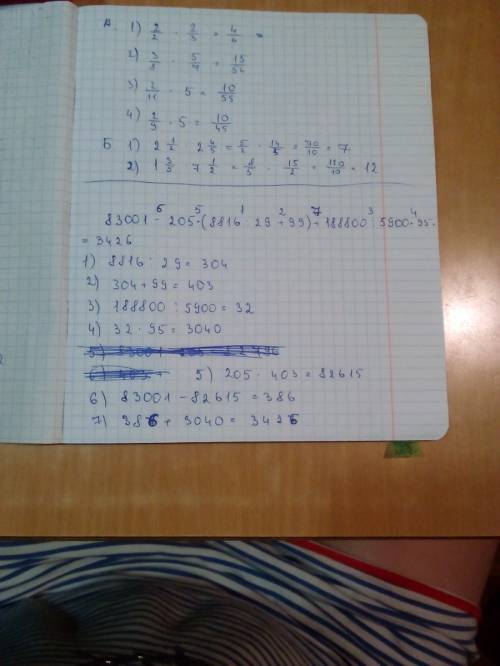 А. 1) 2/2 · 2/3 = 4/6 =
2) 3/8 · 5/7 = 15/56
3) 2/11 · 5 = 10/55
4) 2/9 · 5 = 10/45
Б 1) 2 1/2 · 2 4/5 = 5/2 · 14/5 = 70/10 = 7
2) 1 3/5 · 7 1/2 = 8/5 · 15/2 = 120/10 = 12
83001 - 205·(8816 : 29 + 99) + 188800 : 5900 · 95 =
= 3426
1) 8816 : 29 = 304
2) 304 + 99 = 403
3) 188800 : 5900 = 32
4) 32 · 95 = 3040
5) 205 · 403 = 82615
6) 83001 - 82615 = 386
7) 386 + 3040 = 3426